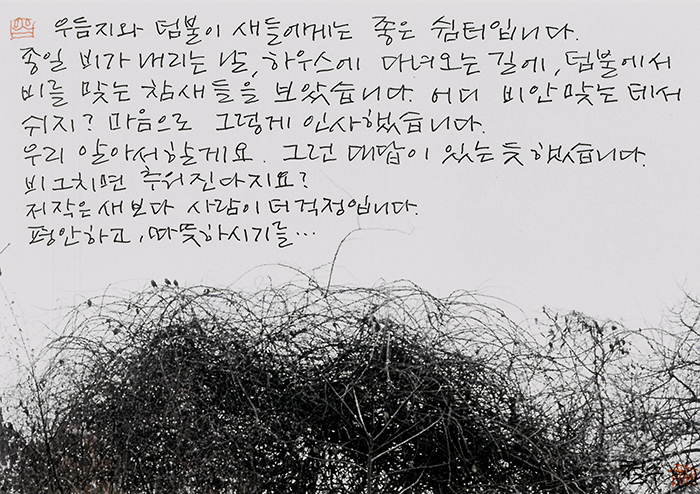 우듬지와 덤불이 새들에게는 좋은 쉼터입니다.
종일 비가 내리는 날, 하우스에 다녀오는 길에, 덤불에서
비를 맞는 참새들을 보았습니다. 어디 비안맞는 데서
쉬지? 마음으로 그렇게 인사했습니다.
우리 알아서할게요. 그런 대답이 있는 듯 했습니다.
비그치면 추워진다지요?
저작은새보다 사람이더걱정입니다.
평안하고, 따뜻하시기를...